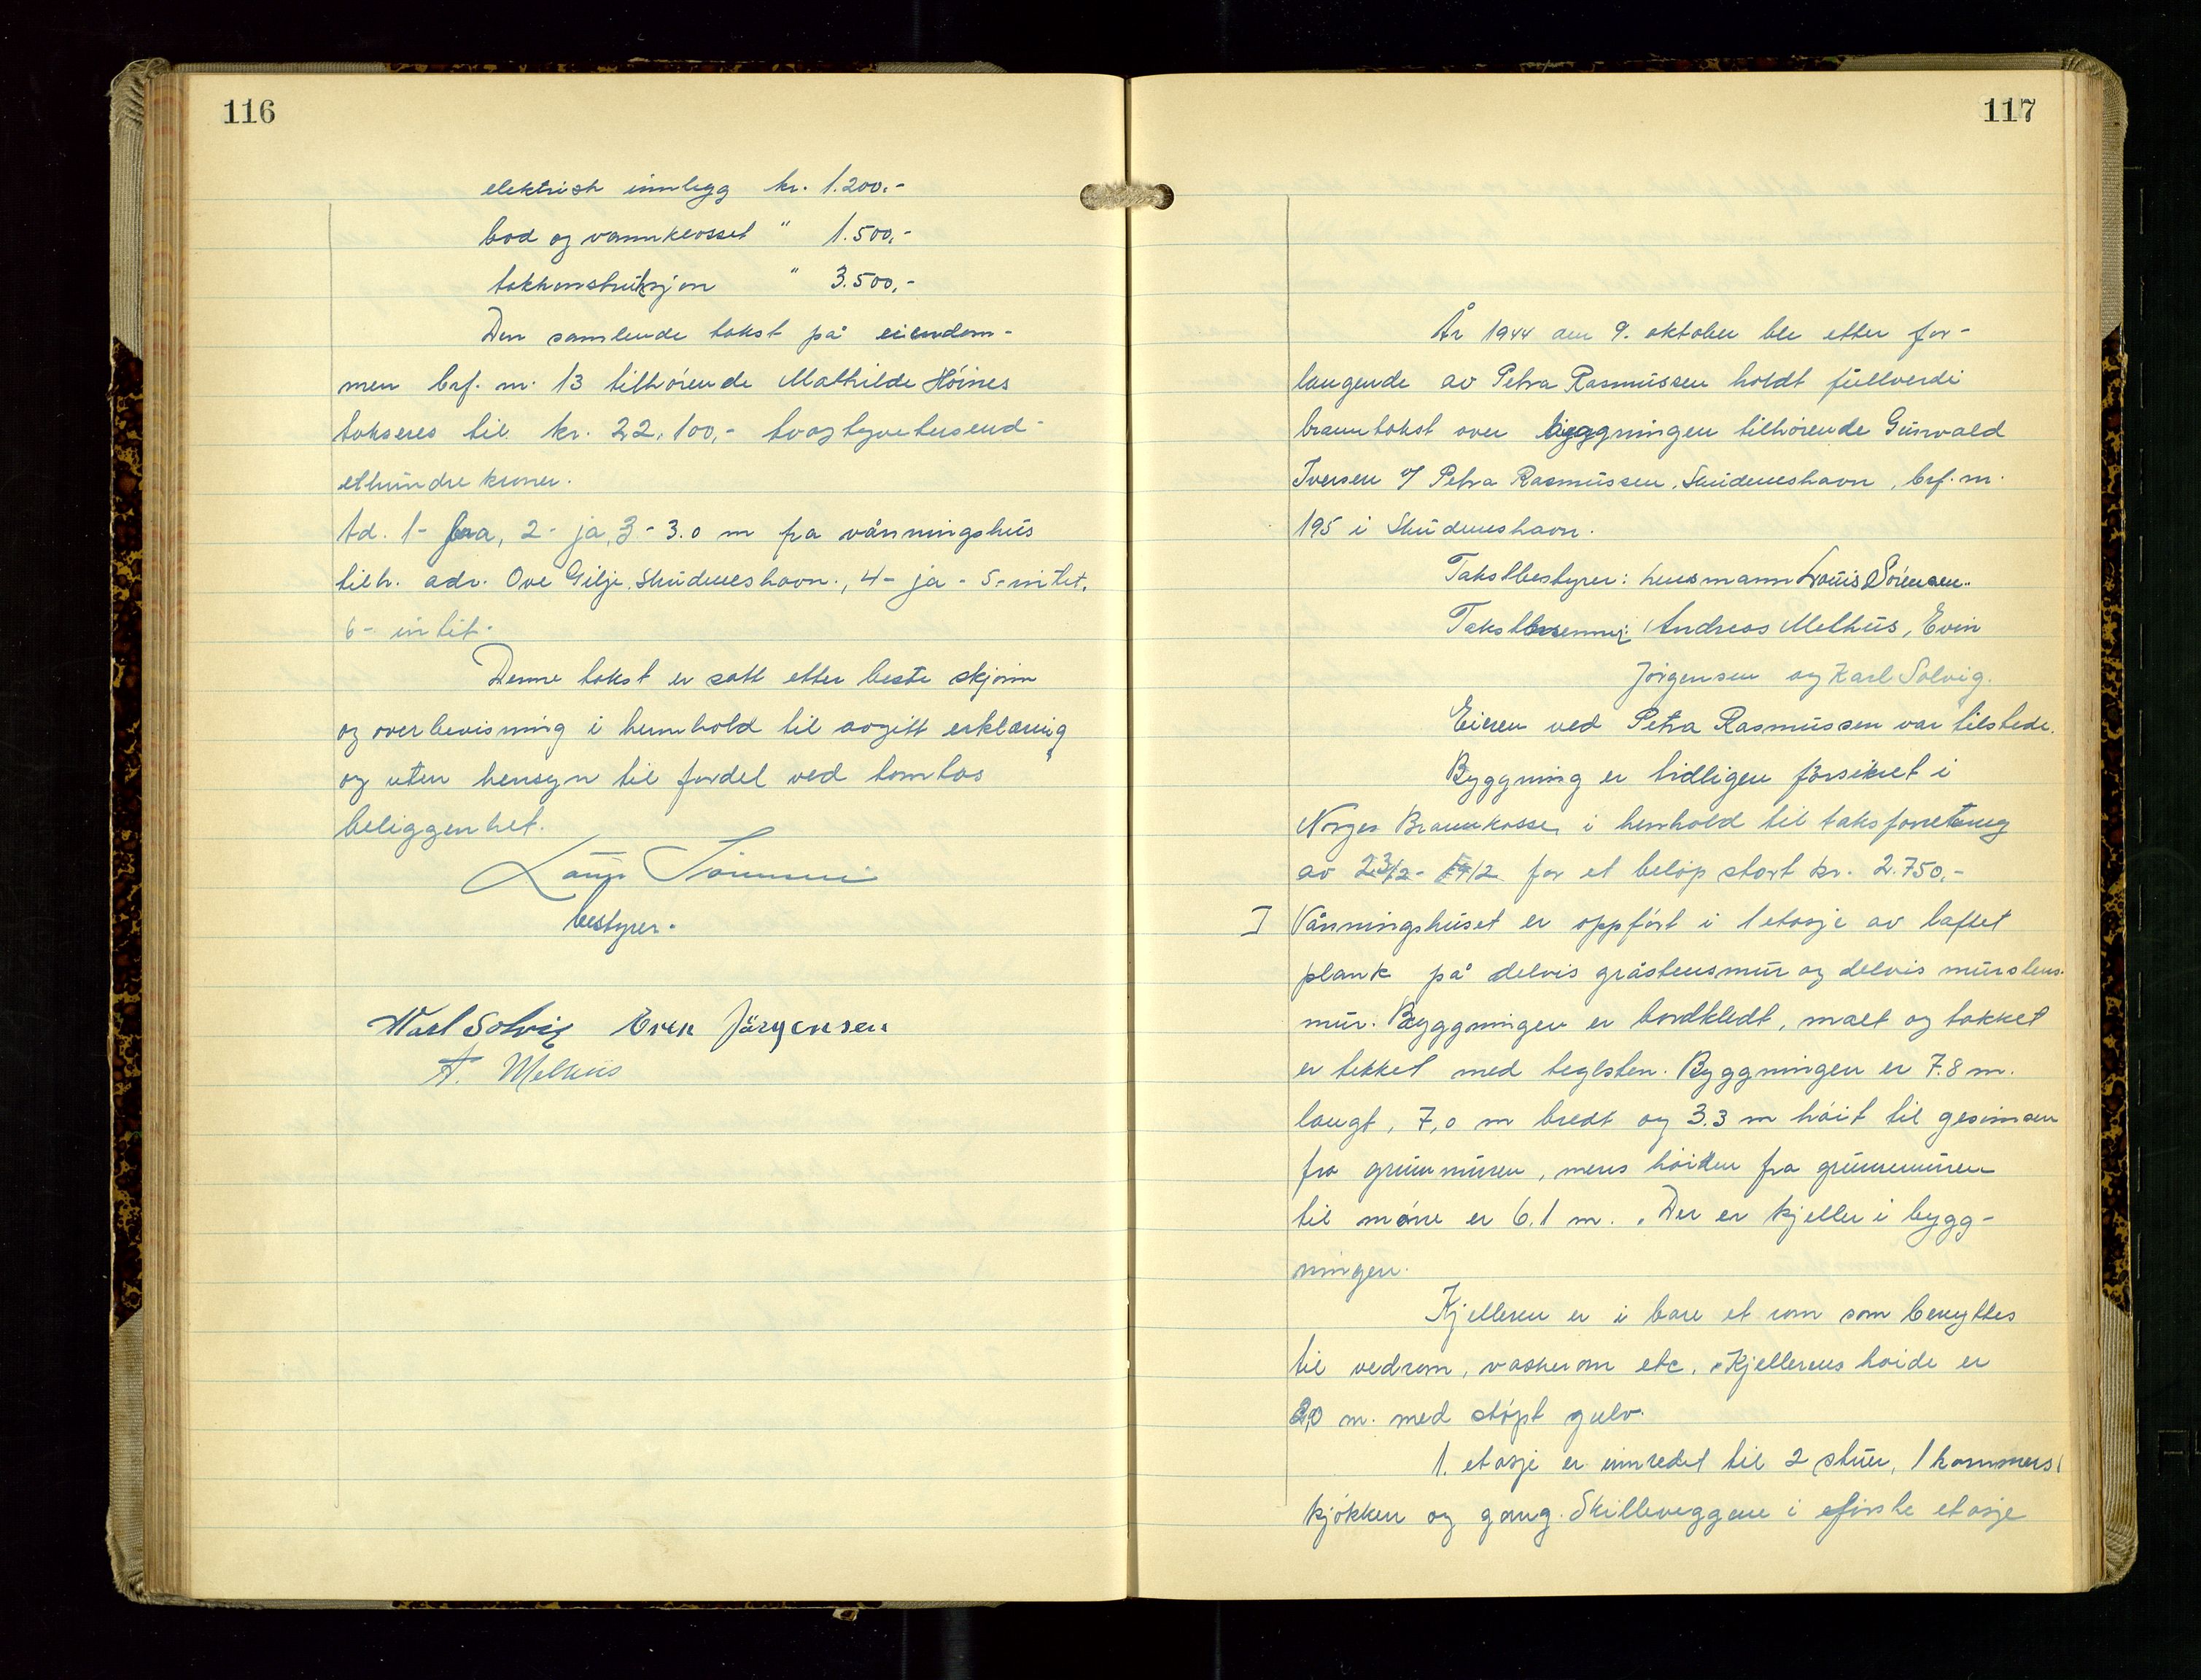 116
elektrisk innlegg kr. 1.200.-
bad og vannklosset " 1.500,-
takkonstruksjon " 3.500,-
Den samlende takst på eiendom-
men brf. nr. 13 tilhörende Mathilde Höines
takseres til kr. 22.100,- toogtyvetusend-
ethundre kroner.
Ad. 1- 2- ja, 3- 3.0 m fra våningshus
tilh. adr. Ove Gilje, Skudeneshavn., 4- ja - 5- intet.
6- intet.
Denne takst er satt etter beste skjönn
og overbevisning i hennhold til avgitt erklæring
og uten hensyn til fordel ved tomtas
beliggenhet.
Louis Sörensen
bestyrer.
Karl Solvig Even Jörgensen
A. Melhus
117
År 1944 den 9. oktober ble etter for-
langende av Petra Rasmussen holdt fullverdi
branntakst over byggningen tilhörende Gunvald
Iversen v/ Petra Rasmussen, Skudeneshavn, brf. nr.
195 i Skudeneshavn.
Takstbestyrer: lensmann Louis Sörensen.
Takstmenn: Andreas Melhus, Even
Jörgensen og Karl Solvig.
Eieren ved Petra Rasmussen var tilstede.
Byggning er tidligere forsikret i
Norges Brannkasse i henhold til taksforretning
av 23/2- for et belöp stort kr. 2.750.-
I Våningshuset er oppfört i 1 etasje av laftet
plank på delvis gråstensmur og delvis murstens-
mur. Byggningen er bordkledt, malt og takket
er tekket med teglsten. Byggningen er 7.8 m.
langt, 7,0 m bredt og 3.3 m höit til gesimsen
fra grunnmuren, mens höiden fra grunnmuren
til möne er 6.1 m. Der er kjeller i bygg-
ningen.
Kjelleren er i bare et rom som benyttes
til vedrom, vaskerom etc. Kjellerens höide er
2,0 m. med stöpt gulv.
1. etasje er innredet til 2 stuer, 1 kammers,
kjökken og gang. Skilleveggene i förste etasje